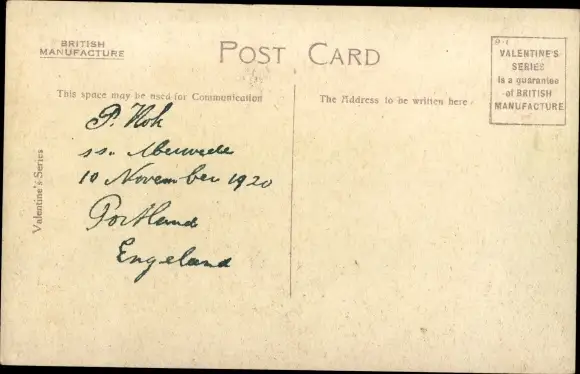 BRITISH
MANUFACTURE
POST CARD
VALENTINE'S
SERIES
is a guarantee
of BRITISH
MANUFACTURE
This space may be used for Communication
The Address to be written here.
Valentine's Series
P. Kok
ss.
10 November 1920
Portland
Engeland